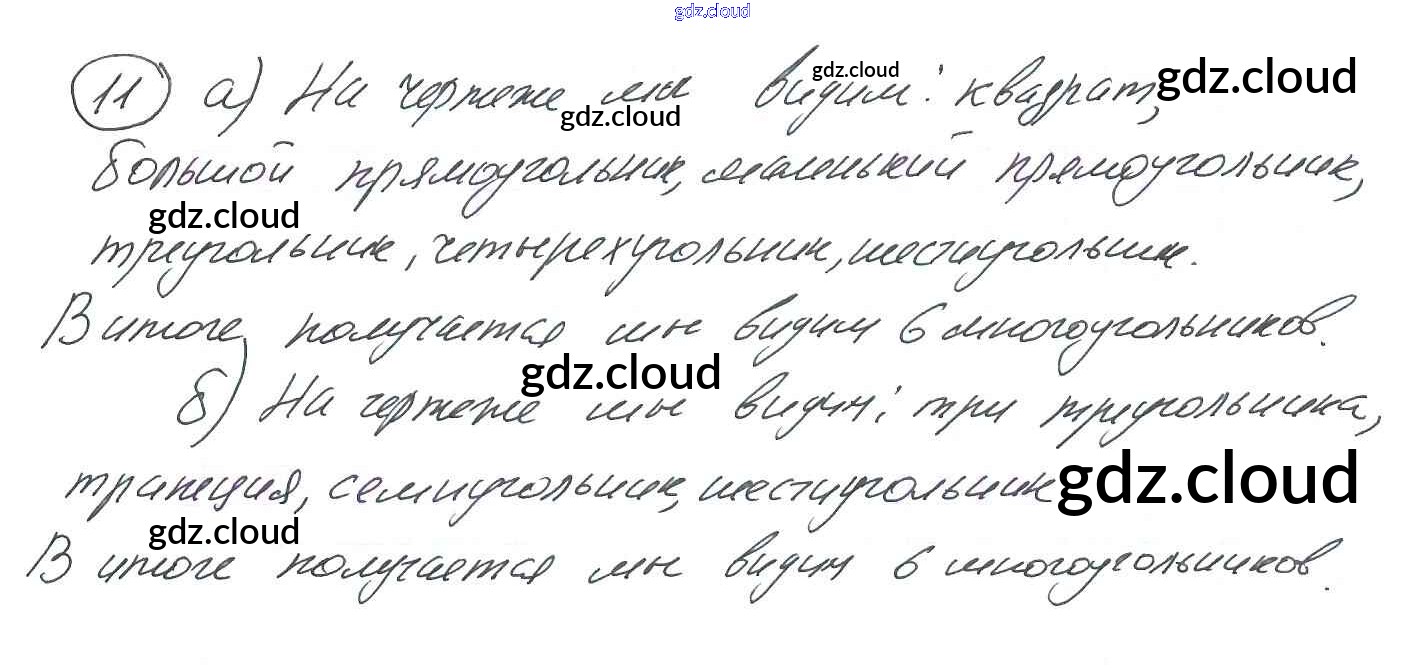 gdz.cloud
11 а) На чертеже мы видим: квадрат,
gdz.cloud gdz.cloud gdz.cloud
большой прямоугольник, маленький прямоугольник,
gdz.cloud
треугольник, четырехугольник, шестиугольник.
В итоге получается мы видим 6 многоугольников.
gdz.cloud
б) На чертеже мы видим: три треугольника,
трапеция, семиугольник, шестиугольник
gdz.cloud
gdz.cloud
В итоге получается мы видим 6 многоугольников.